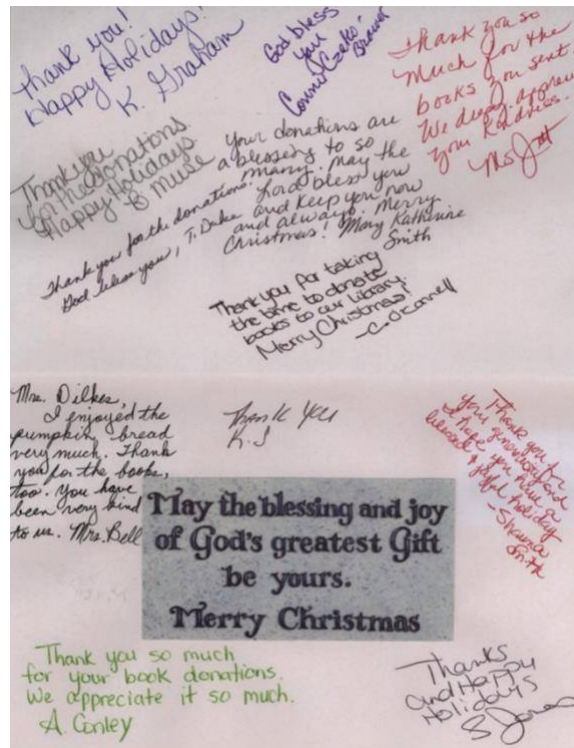 Thank you!
Happy Holidays!
K. Graham
God bless
you
Thank you so
much for the
books you sent.
We deeply
your kindness.
Thank you
for the donations
Happy Holidays
B Muse
Your donations are
a blessing to so
many. May the
Lord bless you
and keep you now
and always. Merry
Christmas! Mary Katherine
Smith
Thank you for the donations.
God bless you, T. Duke
Thank you for taking
the time to donate
books to our library.
Merry Christmas!
-C. O'Connell
Mrs. Dilkes,
I enjoyed the
pumpkin bread
very much. Thank
you for the books,
too. You have
been very kind
to us. Mrs. Bell
Thank you
K. J
Thank you for
your
I hope you have a
blessed
holiday
-Shauna
Smith
May the blessing and joy
of God's greatest Gift
be yours.
Merry Christmas
Thank you so much
for your book donations.
We appreciate it so much.
A. Conley
Thanks
and Happy
Holidays
S Jones